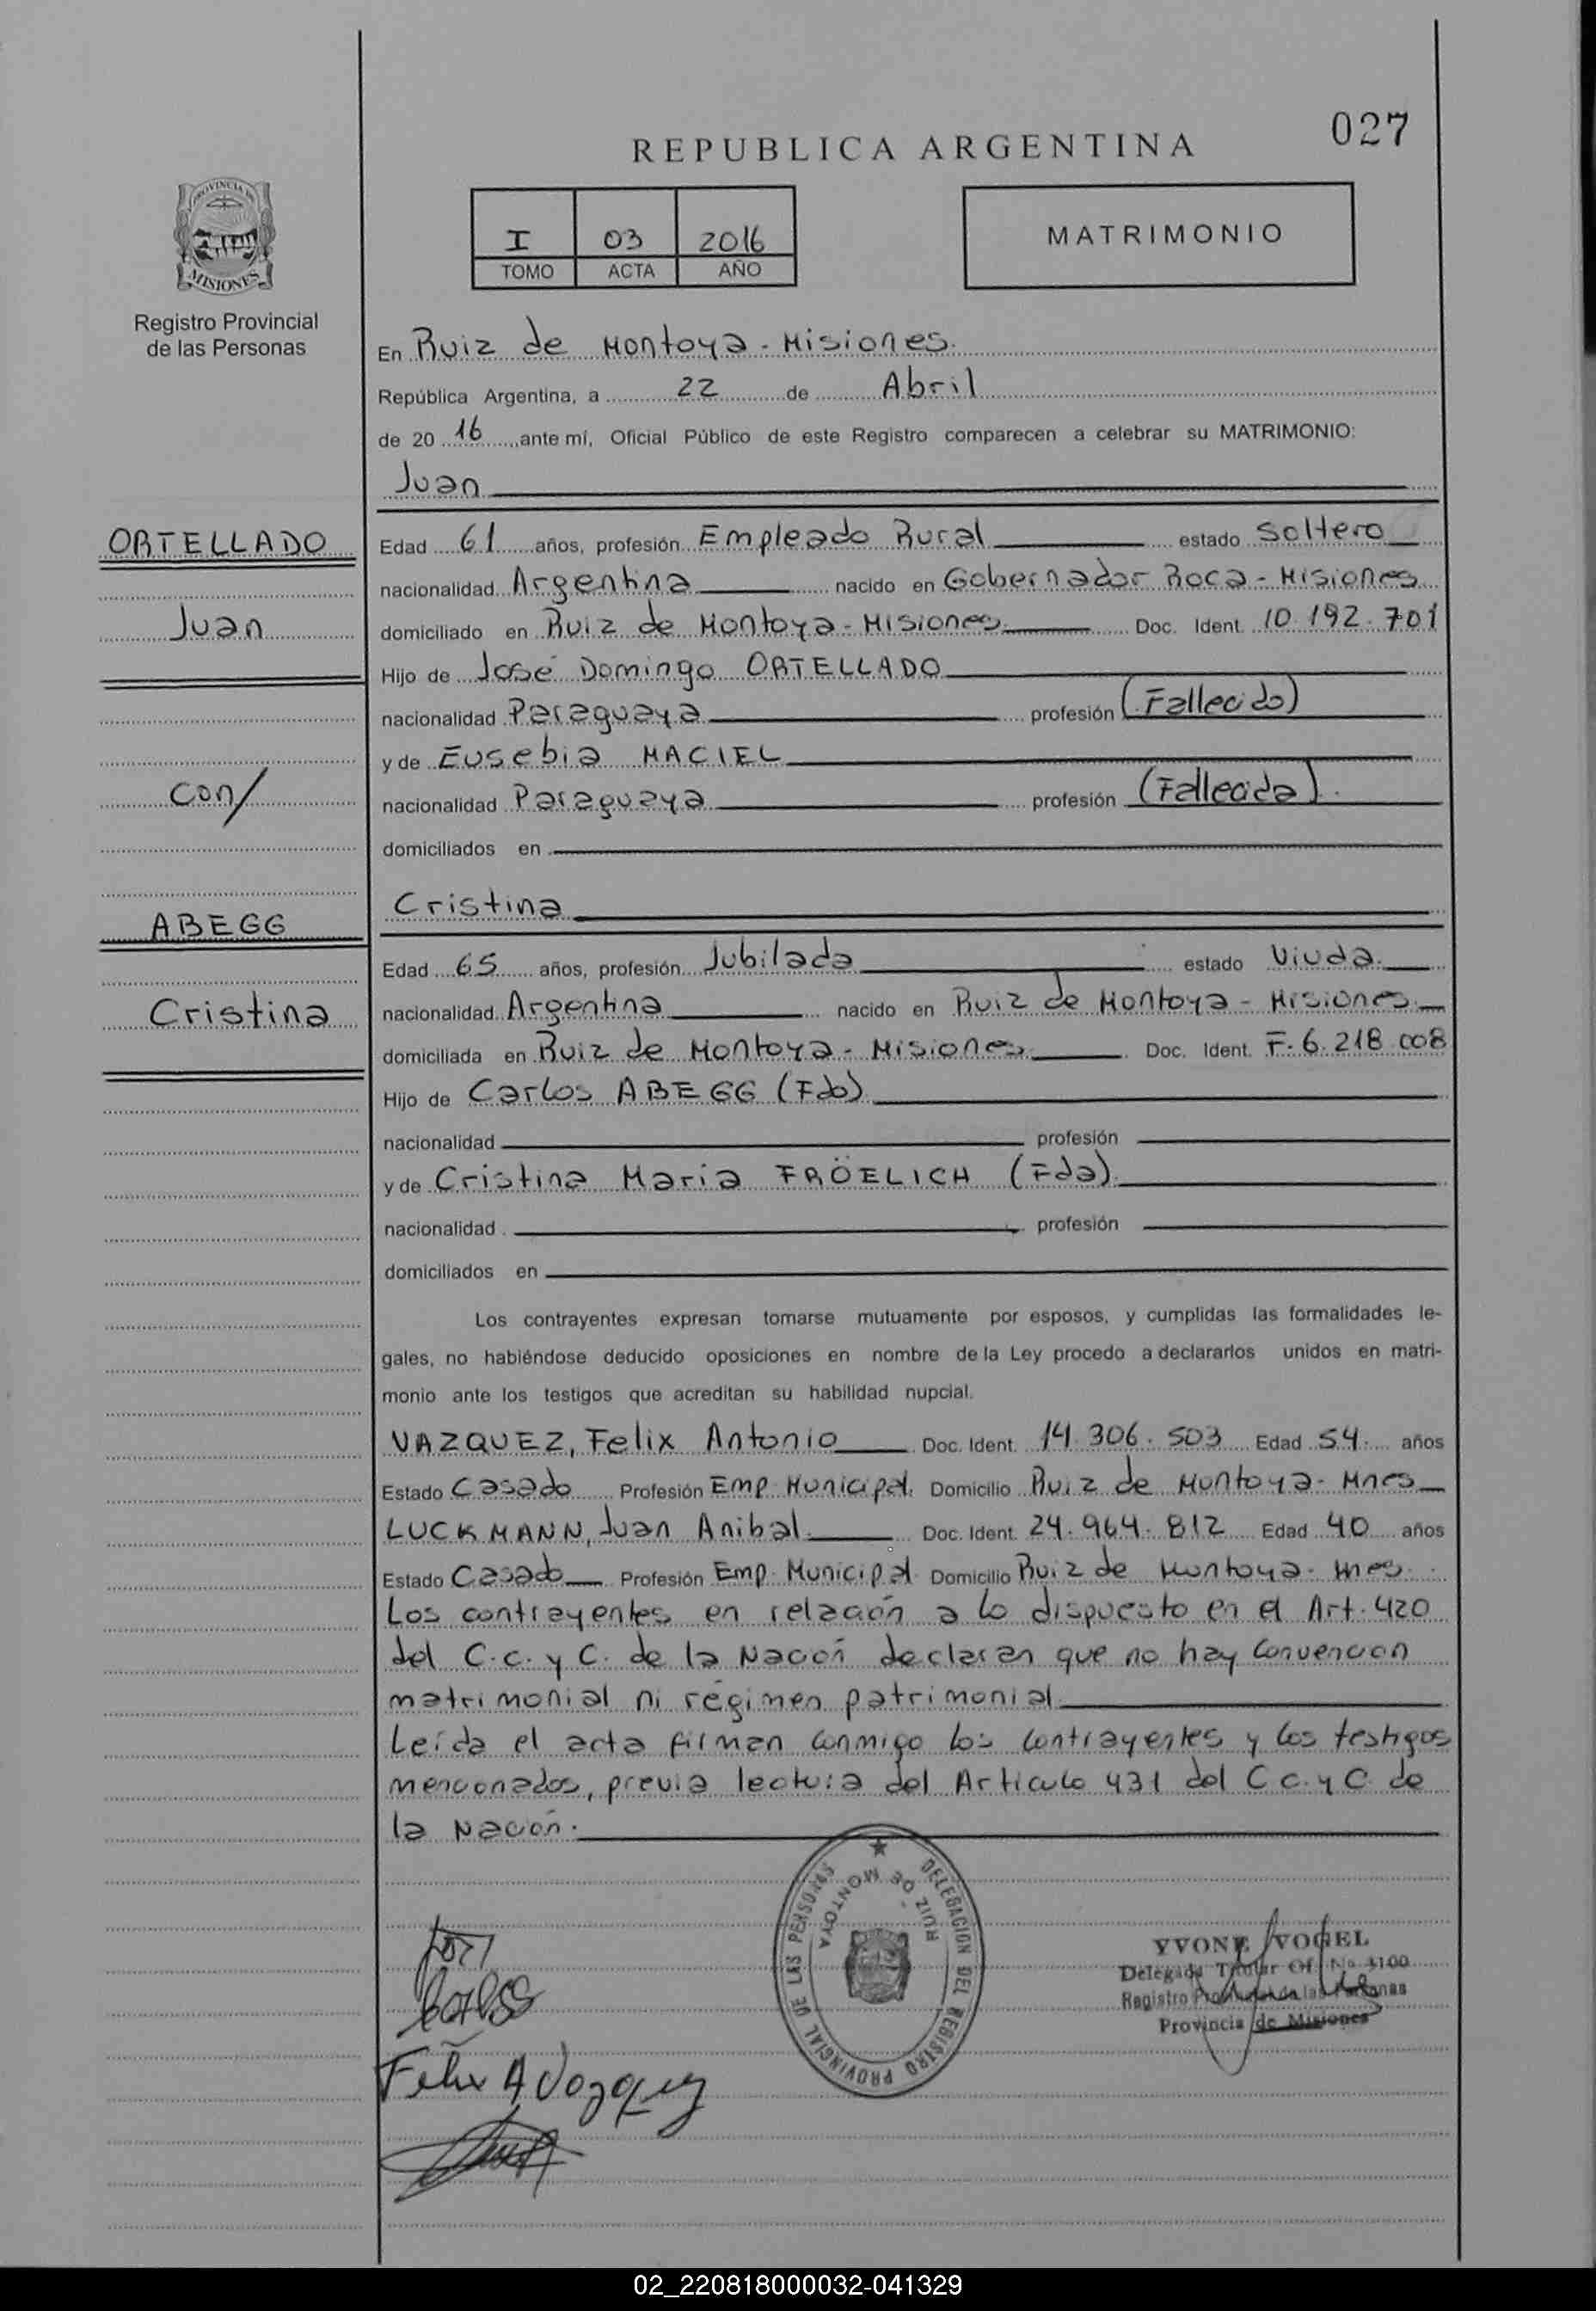 027
REPUBLICA ARGENTINA
PROVINCIA DE
MISIONES
Registro Provincial
de las Personas
I 03 2016
TOMO ACTA AÑO
MATRIMONIO
En Ruiz de Montoya - Misiones.
República Argentina, a 22 de Abril
de 20 16 ante mí, Oficial Público de este Registro comparecen a celebrar su MATRIMONIO:
Juan
ORTELLADO
Juan
con/
ABEGG
Cristina
Edad 61 años, profesión Empleado Rural estado Soltero
nacionalidad Argentina nacido en Gobernador Roca - Misiones
domiciliado en Ruiz de Montoya - Misiones. Doc. Ident. 10.192.701
Hijo de José Domingo ORTELLADO
nacionalidad Paraguaya profesión (Fallecido)
y de Eusebia MACIEL
nacionalidad Paraguaya profesión (Fallecida).
domiciliados en
Cristina
Edad 65 años, profesión Jubilada estado Viuda.
nacionalidad Argentina nacido en Ruiz de Montoya - Misiones.
domiciliada en Ruiz de Montoya - Misiones. Doc. Ident. F. 6.218.008
Hijo de Carlos ABEGG (Fdo)
nacionalidad profesión
y de Cristina Maria FRÖELICH (Fda).
nacionalidad profesión
domiciliados en
Los contrayentes expresan tomarse mutuamente por esposos, y cumplidas las formalidades le-
gales, no habiéndose deducido oposiciones en nombre de la Ley procedo a declararlos unidos en matri-
monio ante los testigos que acreditan su habilidad nupcial.
VAZQUEZ, Felix Antonio Doc. Ident. 14.306.503 Edad 54. años
Estado Casado Profesión Emp. Municipal. Domicilio Ruiz de Montoya - Mnes
LUCKMANN, Juan Anibal. Doc. Ident. 24.964.812 Edad 40 años
Estado Casado Profesión Emp. Municipal Domicilio Ruiz de Montoya - Mnes.
Los contrayentes en relación a lo dispuesto en el Art. 420
del C.c. y C. de la Nación declaran que no hay convencion
matrimonial ni régimen patrimonial.
Leída el acta firman conmigo los contrayentes y los testigos
mencionados, previa lectura del Articulo 431 del C c. y C. de
la Nación.
DELEGACION DEL REGISTRO PROVINCIAL DE LAS PERSONAS
RUIZ DE MONTOYA
YVONE VOGEL
Delegada Titular Of. No 1100
Registro Provincial de las Personas
Provincia de Misiones
Felix A Vazquez
02_220818000032-041329